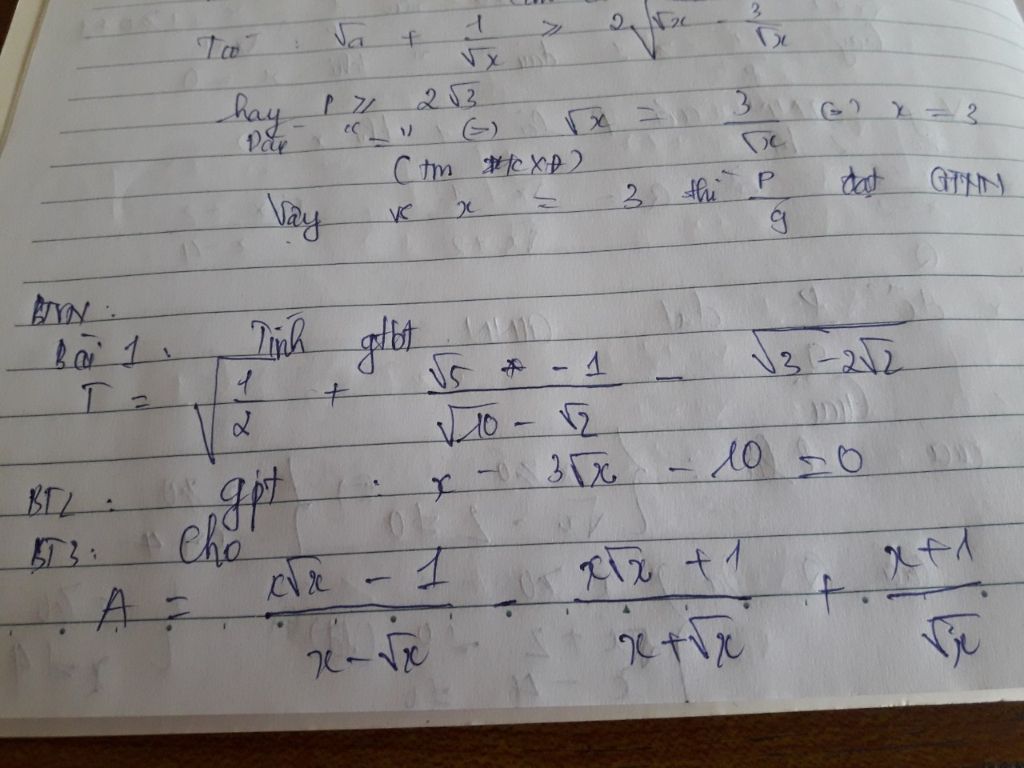 Ta có : √a + 1/√x ≥ 2√(√x · 3/√x)
hay P ≥ 2√3
Dấu "=" (=) √x = 3/√x (=) x = 3
(tm ĐKXĐ)
Vậy x = 3 thì P/9 đạt GTNN
BTVN :
Bài 1 : Tính gtbt
T = √(1/2) + (√5 - 1)/(√10 - √2) - √(3 - 2√2)
BT2 : gpt : x - 3√x - 10 = 0
BT3 : Cho
A = (x√x - 1)/(x - √x) - (x√x + 1)/(x + √x) + (x + 1)/√x